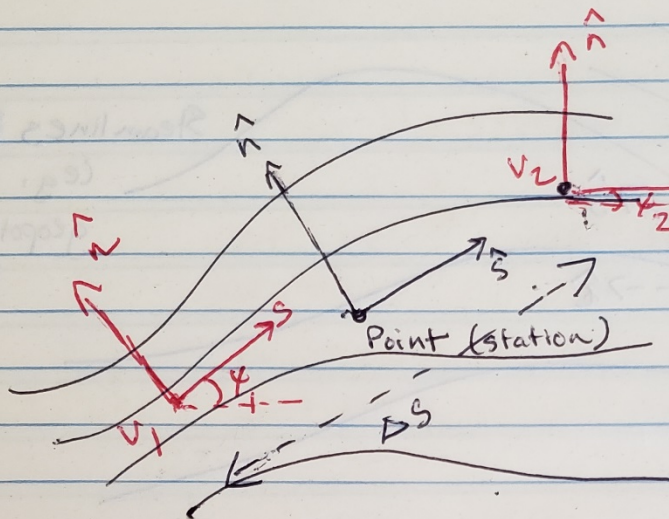 n̂
n̂
V2
ψ2
n̂
ŝ
s
Point (station)
ψ
V1
ΔS